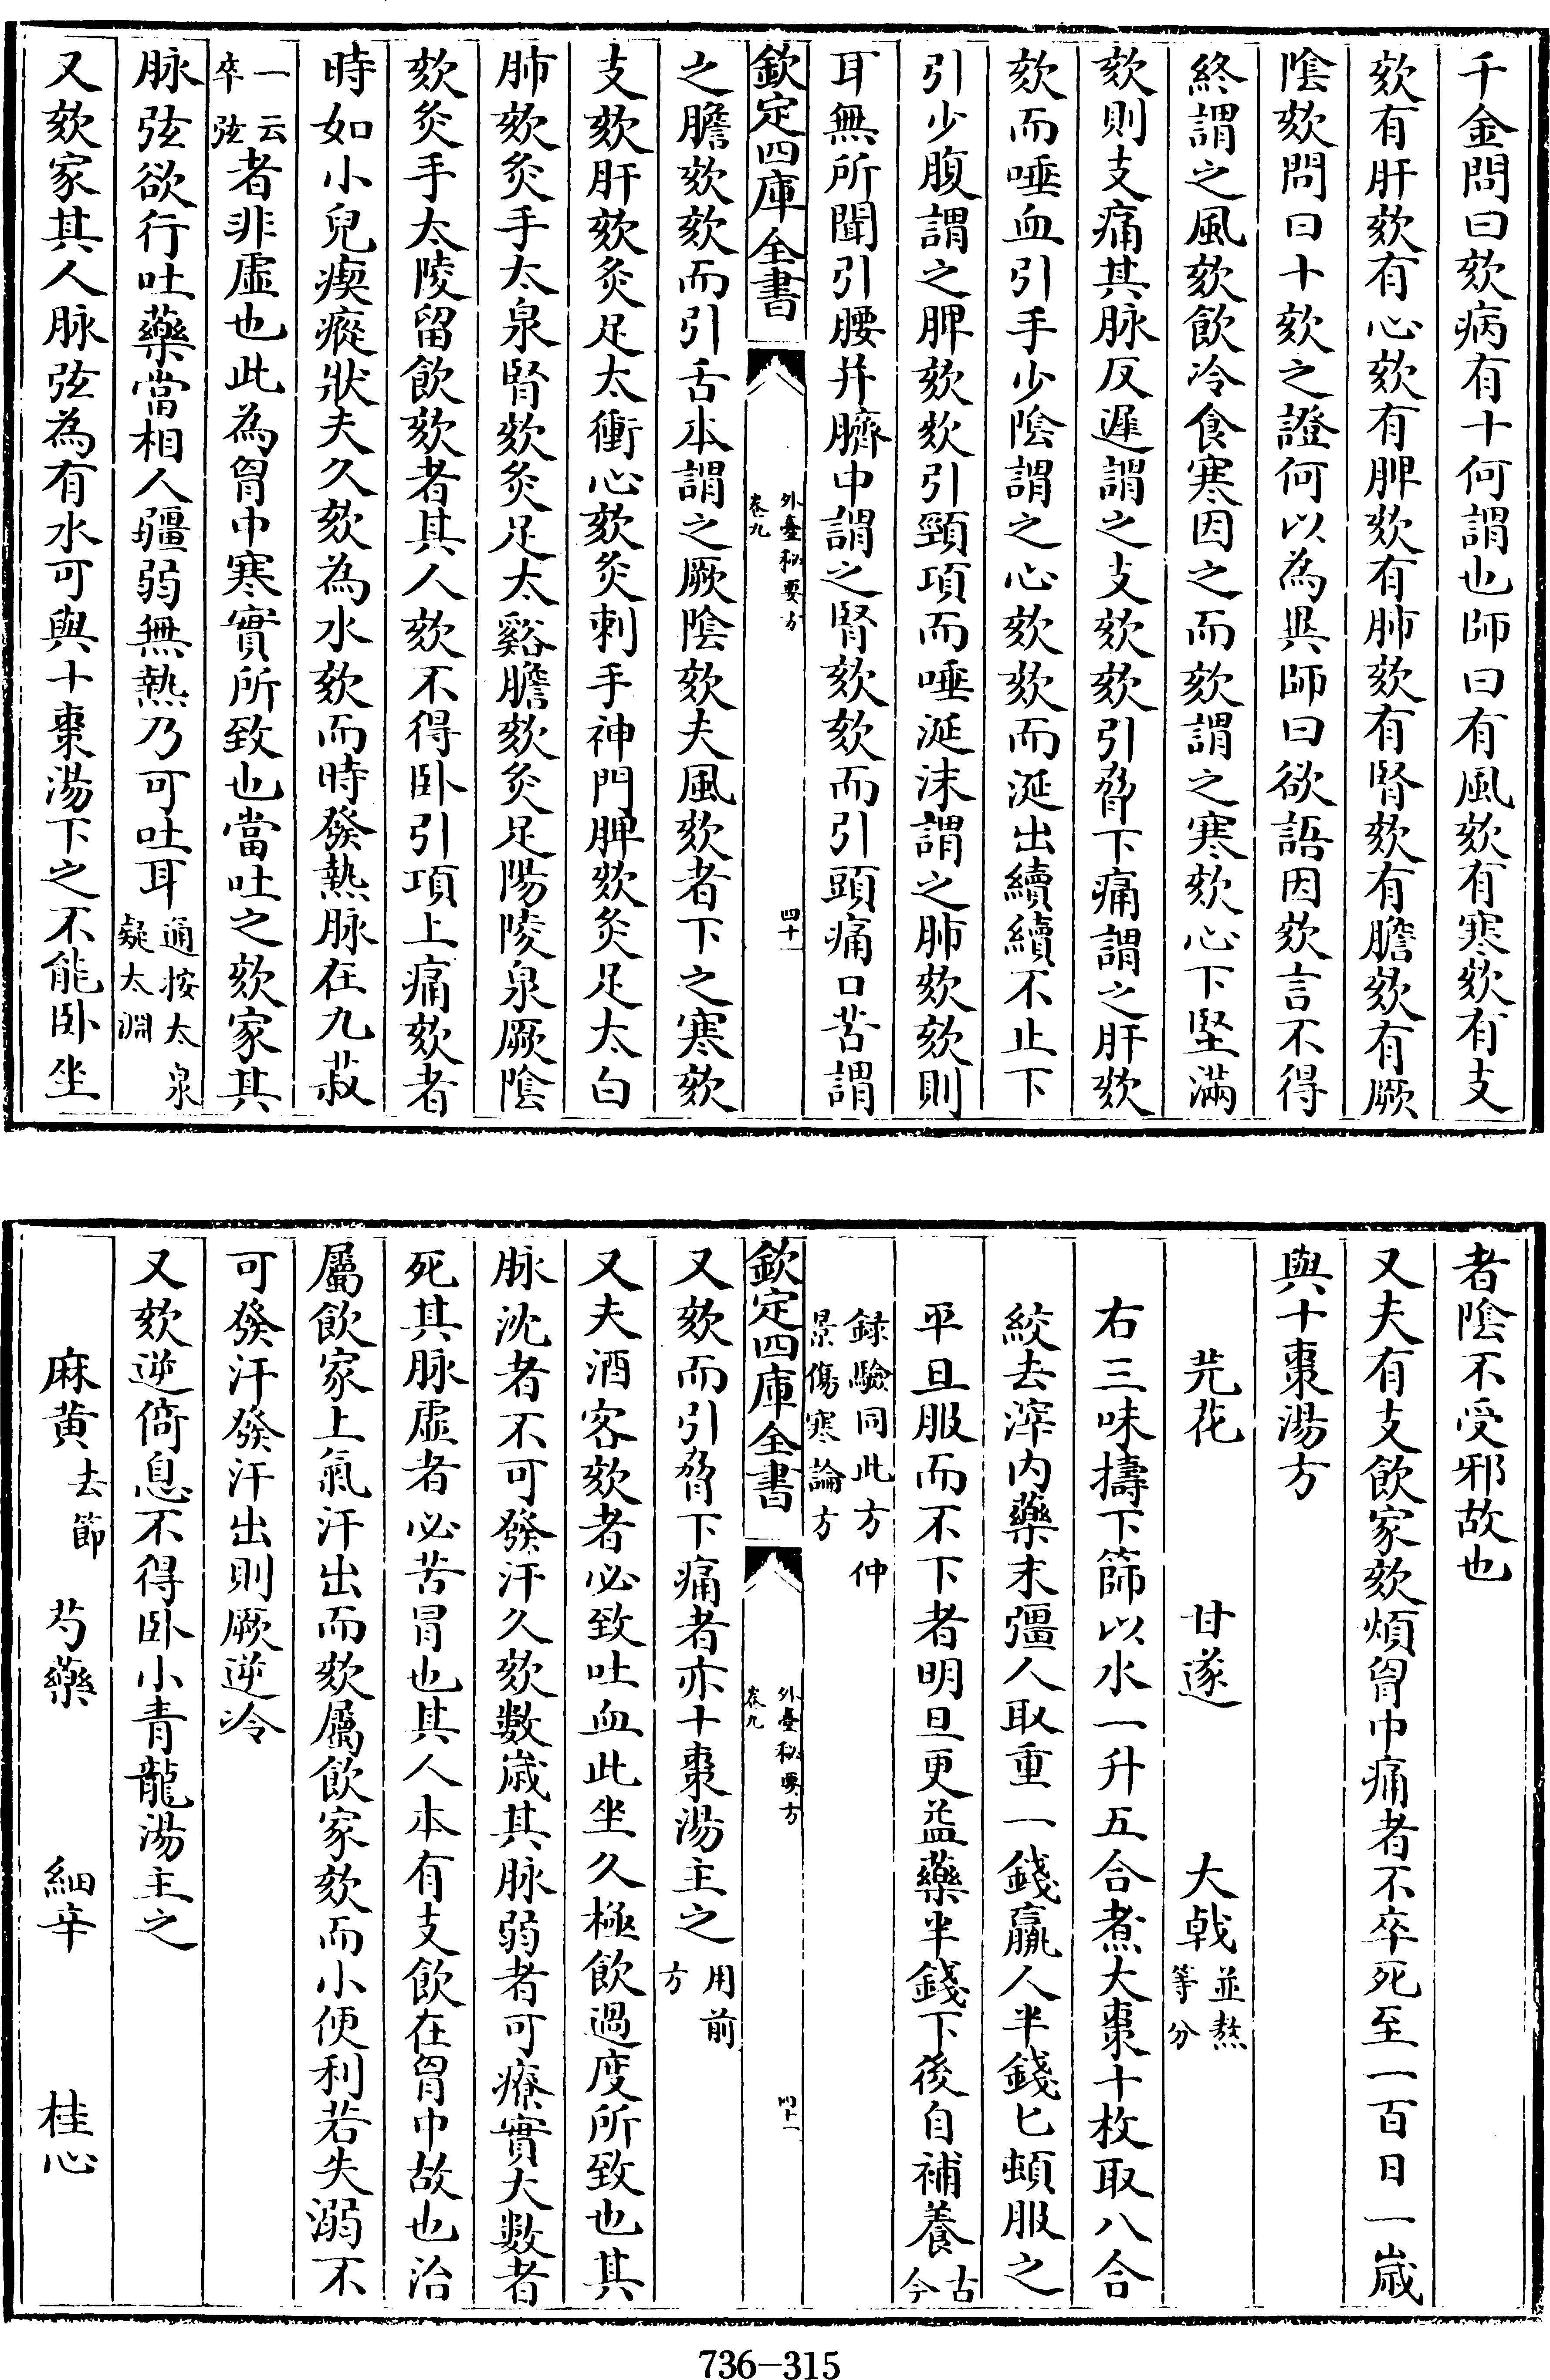 千金問曰欬病有十何謂也師曰有風欬有寒欬有支
欬有肝欬有心欬有脾欬有肺欬有腎欬有膽欬有厥
陰欬問曰十欬之證何以為異師曰欲語因欬言不得
終謂之風欬飲冷食寒因之而欬謂之寒欬心下堅滿
欬則支痛其脉反遲謂之支欬欬引脅下痛謂之肝欬
欬而唾血引手少陰謂之心欬欬而涎出續續不止下
引少腹謂之脾欬欬引頸項而唾涎沫謂之肺欬欬則
耳無所聞引腰并臍中謂之腎欬欬而引頭痛口苦謂
欽定四庫全書
外臺秘要方
卷九
四十
之膽欬欬而引舌本謂之厥陰欬夫風欬者下之寒欬
支欬肝欬灸足太衝心欬灸刺手神門脾欬灸足太白
肺欬灸手太泉腎欬灸足太谿膽欬灸足陽陵泉厥陰
欬灸手太陵留飲欬者其人欬不得卧引項上痛欬者
時如小兒瘈瘲狀夫久欬為水欬而時發熱脉在九菽
一云
卒弦
者非虛也此為胷中寒實所致也當吐之欬家其
脉弦欲行吐藥當相人彊弱無熱乃可吐耳
通按太泉
疑太淵
又欬家其人脉弦為有水可與十棗湯下之不能卧坐
者陰不受邪故也
又夫有支飲家欬煩胷中痛者不卒死至一百日一歲
與十棗湯方
芫花　甘遂　大戟
並熬
等分
右三味擣下篩以水一升五合煮大棗十枚取八合
絞去滓内藥末彊人取重一錢羸人半錢匕頓服之
平旦服而不下者明旦更益藥半錢下後自補養
古
今
録驗同此方仲
景傷寒論方
欽定四庫全書
外臺秘要方
卷九
四十一
又欬而引脅下痛者亦十棗湯主之
用前
方
又夫酒客欬者必致吐血此坐久極飲過度所致也其
脉沈者不可發汗久欬數歲其脉弱者可療實大數者
死其脉虛者必苦冒也其人本有支飲在胷中故也治
屬飲家上氣汗出而欬屬飲家欬而小便利若失溺不
可發汗發汗出則厥逆冷
又欬逆倚息不得卧小青龍湯主之
麻黄去節　芍藥　細辛　桂心
736-315